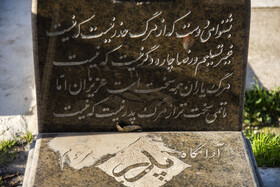 بشنو ای دوست که از مرگ حذر نیست که نیست
غیر تسلیم و رضا چاره دگر نیست که نیست
مرگ یاران همه سخت است عزیزان اما
ماتمی سخت تر از مرگ پدر نیست که نیست
آرامگاه
پدر